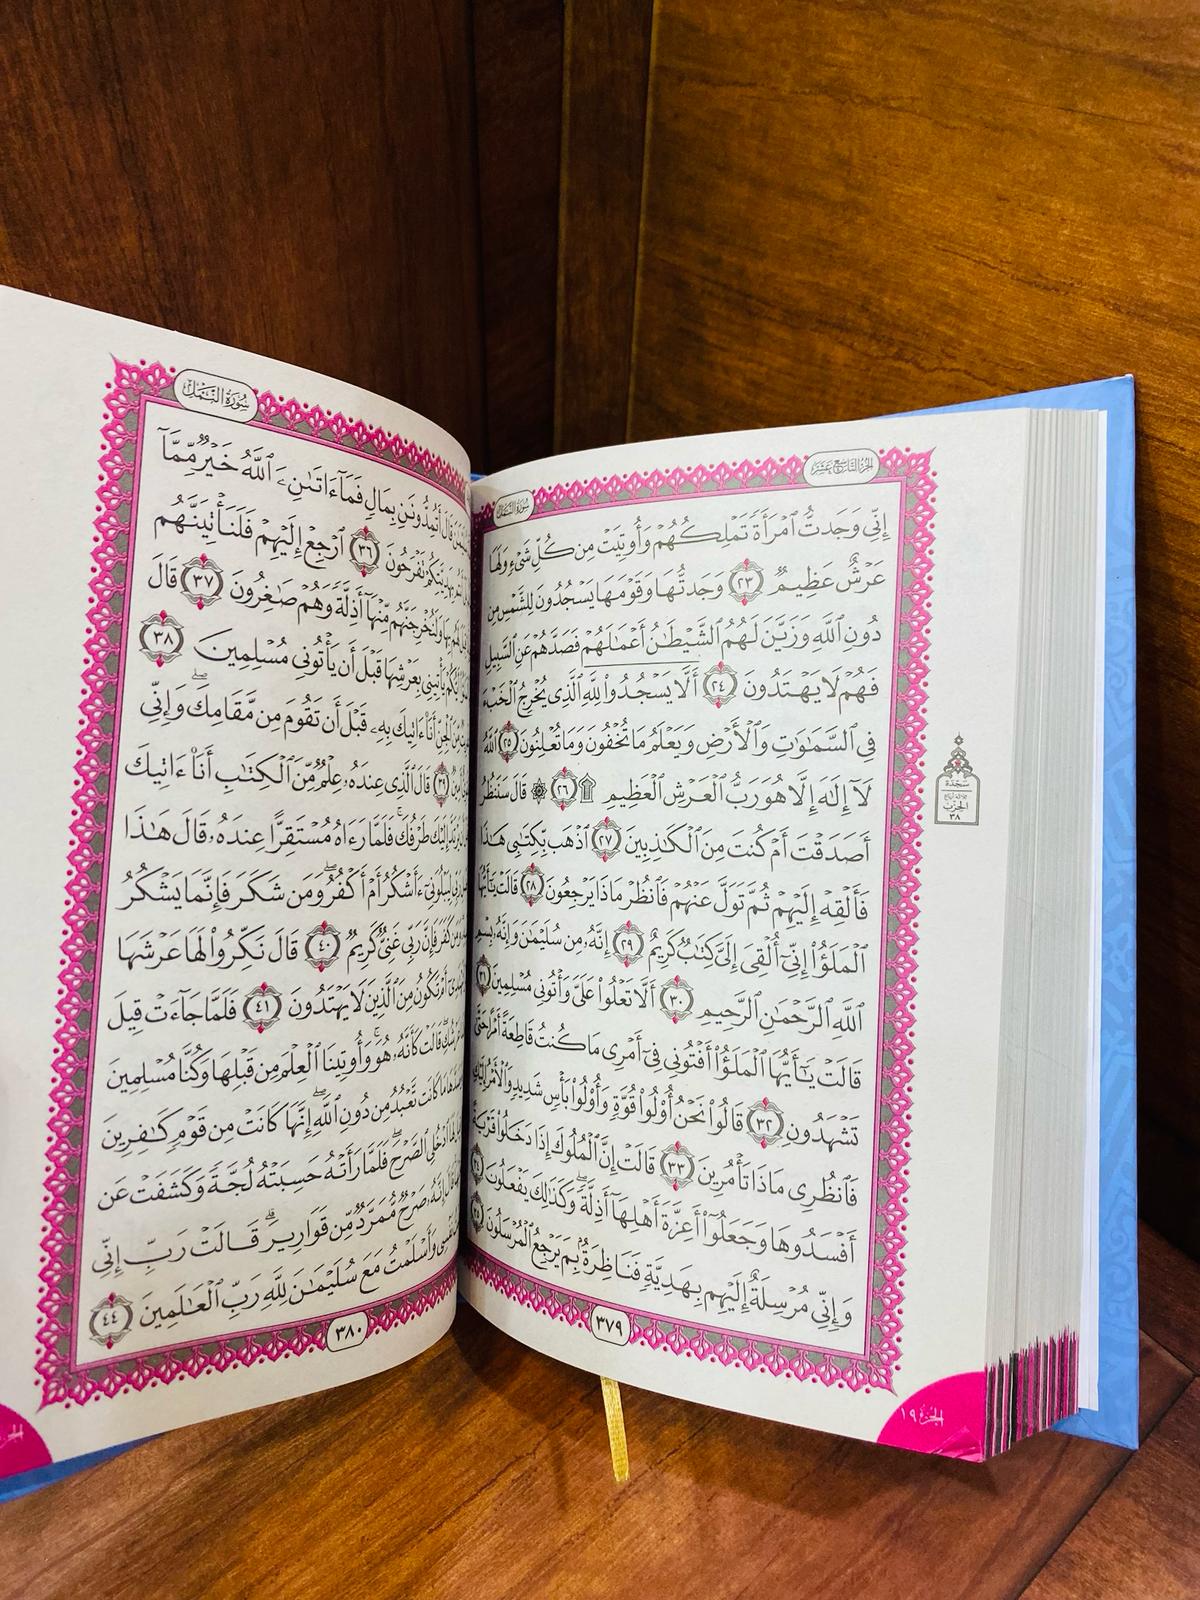 الجزء التاسع عشر
سورة النمل
إِنِّي وَجَدتُّ ٱمْرَأَةً تَمْلِكُهُمْ وَأُوتِيَتْ مِن كُلِّ شَىْءٍ وَلَهَا
عَرْشٌ عَظِيمٌ ٢٣ وَجَدتُّهَا وَقَوْمَهَا يَسْجُدُونَ لِلشَّمْسِ مِن
دُونِ ٱللَّهِ وَزَيَّنَ لَهُمُ ٱلشَّيْطَٰنُ أَعْمَٰلَهُمْ فَصَدَّهُمْ عَنِ ٱلسَّبِيلِ
فَهُمْ لَا يَهْتَدُونَ ٢٤ أَلَّا يَسْجُدُوا۟ لِلَّهِ ٱلَّذِى يُخْرِجُ ٱلْخَبْءَ
فِى ٱلسَّمَٰوَٰتِ وَٱلْأَرْضِ وَيَعْلَمُ مَا تُخْفُونَ وَمَا تُعْلِنُونَ ٢٥ ٱللَّهُ
لَآ إِلَٰهَ إِلَّا هُوَ رَبُّ ٱلْعَرْشِ ٱلْعَظِيمِ ۩ ٢٦ ۞ قَالَ سَنَنظُرُ
أَصَدَقْتَ أَمْ كُنتَ مِنَ ٱلْكَٰذِبِينَ ٢٧ ٱذْهَب بِّكِتَٰبِى هَٰذَا
فَأَلْقِهْ إِلَيْهِمْ ثُمَّ تَوَلَّ عَنْهُمْ فَٱنظُرْ مَاذَا يَرْجِعُونَ ٢٨ قَالَتْ يَٰٓأَيُّهَا
ٱلْمَلَؤُا۟ إِنِّىٓ أُلْقِىَ إِلَىَّ كِتَٰبٌ كَرِيمٌ ٢٩ إِنَّهُۥ مِن سُلَيْمَٰنَ وَإِنَّهُۥ بِسْمِ
ٱللَّهِ ٱلرَّحْمَٰنِ ٱلرَّحِيمِ ٣٠ أَلَّا تَعْلُوا۟ عَلَىَّ وَأْتُونِى مُسْلِمِينَ ٣١
قَالَتْ يَٰٓأَيُّهَا ٱلْمَلَؤُا۟ أَفْتُونِى فِىٓ أَمْرِى مَا كُنتُ قَاطِعَةً أَمْرًا حَتَّىٰ
تَشْهَدُونِ ٣٢ قَالُوا۟ نَحْنُ أُو۟لُوا۟ قُوَّةٍ وَأُو۟لُوا۟ بَأْسٍ شَدِيدٍ وَٱلْأَمْرُ إِلَيْكِ
فَٱنظُرِى مَاذَا تَأْمُرِينَ ٣٣ قَالَتْ إِنَّ ٱلْمُلُوكَ إِذَا دَخَلُوا۟ قَرْيَةً
أَفْسَدُوهَا وَجَعَلُوٓا۟ أَعِزَّةَ أَهْلِهَآ أَذِلَّةً ۖ وَكَذَٰلِكَ يَفْعَلُونَ ٣٤
وَإِنِّى مُرْسِلَةٌ إِلَيْهِم بِهَدِيَّةٍ فَنَاظِرَةٌۢ بِمَ يَرْجِعُ ٱلْمُرْسَلُونَ ٣٥
٣٧٩
سجدة
الحزب
٣٨
الجزء ١٩
سورة النمل
قَالَ أَتُمِدُّونَنِ بِمَالٍ فَمَآ ءَاتَىٰنِۦَ ٱللَّهُ خَيْرٌ مِّمَّآ
تَفْرَحُونَ ٣٦ ٱرْجِعْ إِلَيْهِمْ فَلَنَأْتِيَنَّهُم
وَلَنُخْرِجَنَّهُم مِّنْهَآ أَذِلَّةً وَهُمْ صَٰغِرُونَ ٣٧ قَالَ
يَأْتِينِى بِعَرْشِهَا قَبْلَ أَن يَأْتُونِى مُسْلِمِينَ ٣٨
ٱلْجِنِّ أَنَا۠ ءَاتِيكَ بِهِۦ قَبْلَ أَن تَقُومَ مِن مَّقَامِكَ ۖ وَإِنِّى
٣٩ قَالَ ٱلَّذِى عِندَهُۥ عِلْمٌ مِّنَ ٱلْكِتَٰبِ أَنَا۠ ءَاتِيكَ
إِلَيْكَ طَرْفُكَ ۚ فَلَمَّا رَءَاهُ مُسْتَقِرًّا عِندَهُۥ قَالَ هَٰذَا
لِيَبْلُوَنِىٓ ءَأَشْكُرُ أَمْ أَكْفُرُ ۖ وَمَن شَكَرَ فَإِنَّمَا يَشْكُرُ
كَفَرَ فَإِنَّ رَبِّى غَنِىٌّ كَرِيمٌ ٤٠ قَالَ نَكِّرُوا۟ لَهَا عَرْشَهَا
أَمْ تَكُونُ مِنَ ٱلَّذِينَ لَا يَهْتَدُونَ ٤١ فَلَمَّا جَآءَتْ قِيلَ
قَالَتْ كَأَنَّهُۥ هُوَ ۚ وَأُوتِينَا ٱلْعِلْمَ مِن قَبْلِهَا وَكُنَّا مُسْلِمِينَ
مَا كَانَت تَّعْبُدُ مِن دُونِ ٱللَّهِ ۖ إِنَّهَا كَانَتْ مِن قَوْمٍ كَٰفِرِينَ
ٱدْخُلِى ٱلصَّرْحَ ۖ فَلَمَّا رَأَتْهُ حَسِبَتْهُ لُجَّةً وَكَشَفَتْ عَن
إِنَّهُۥ صَرْحٌ مُّمَرَّدٌ مِّن قَوَارِيرَ ۗ قَالَتْ رَبِّ إِنِّى
وَأَسْلَمْتُ مَعَ سُلَيْمَٰنَ لِلَّهِ رَبِّ ٱلْعَٰلَمِينَ ٤٤
٣٨٠